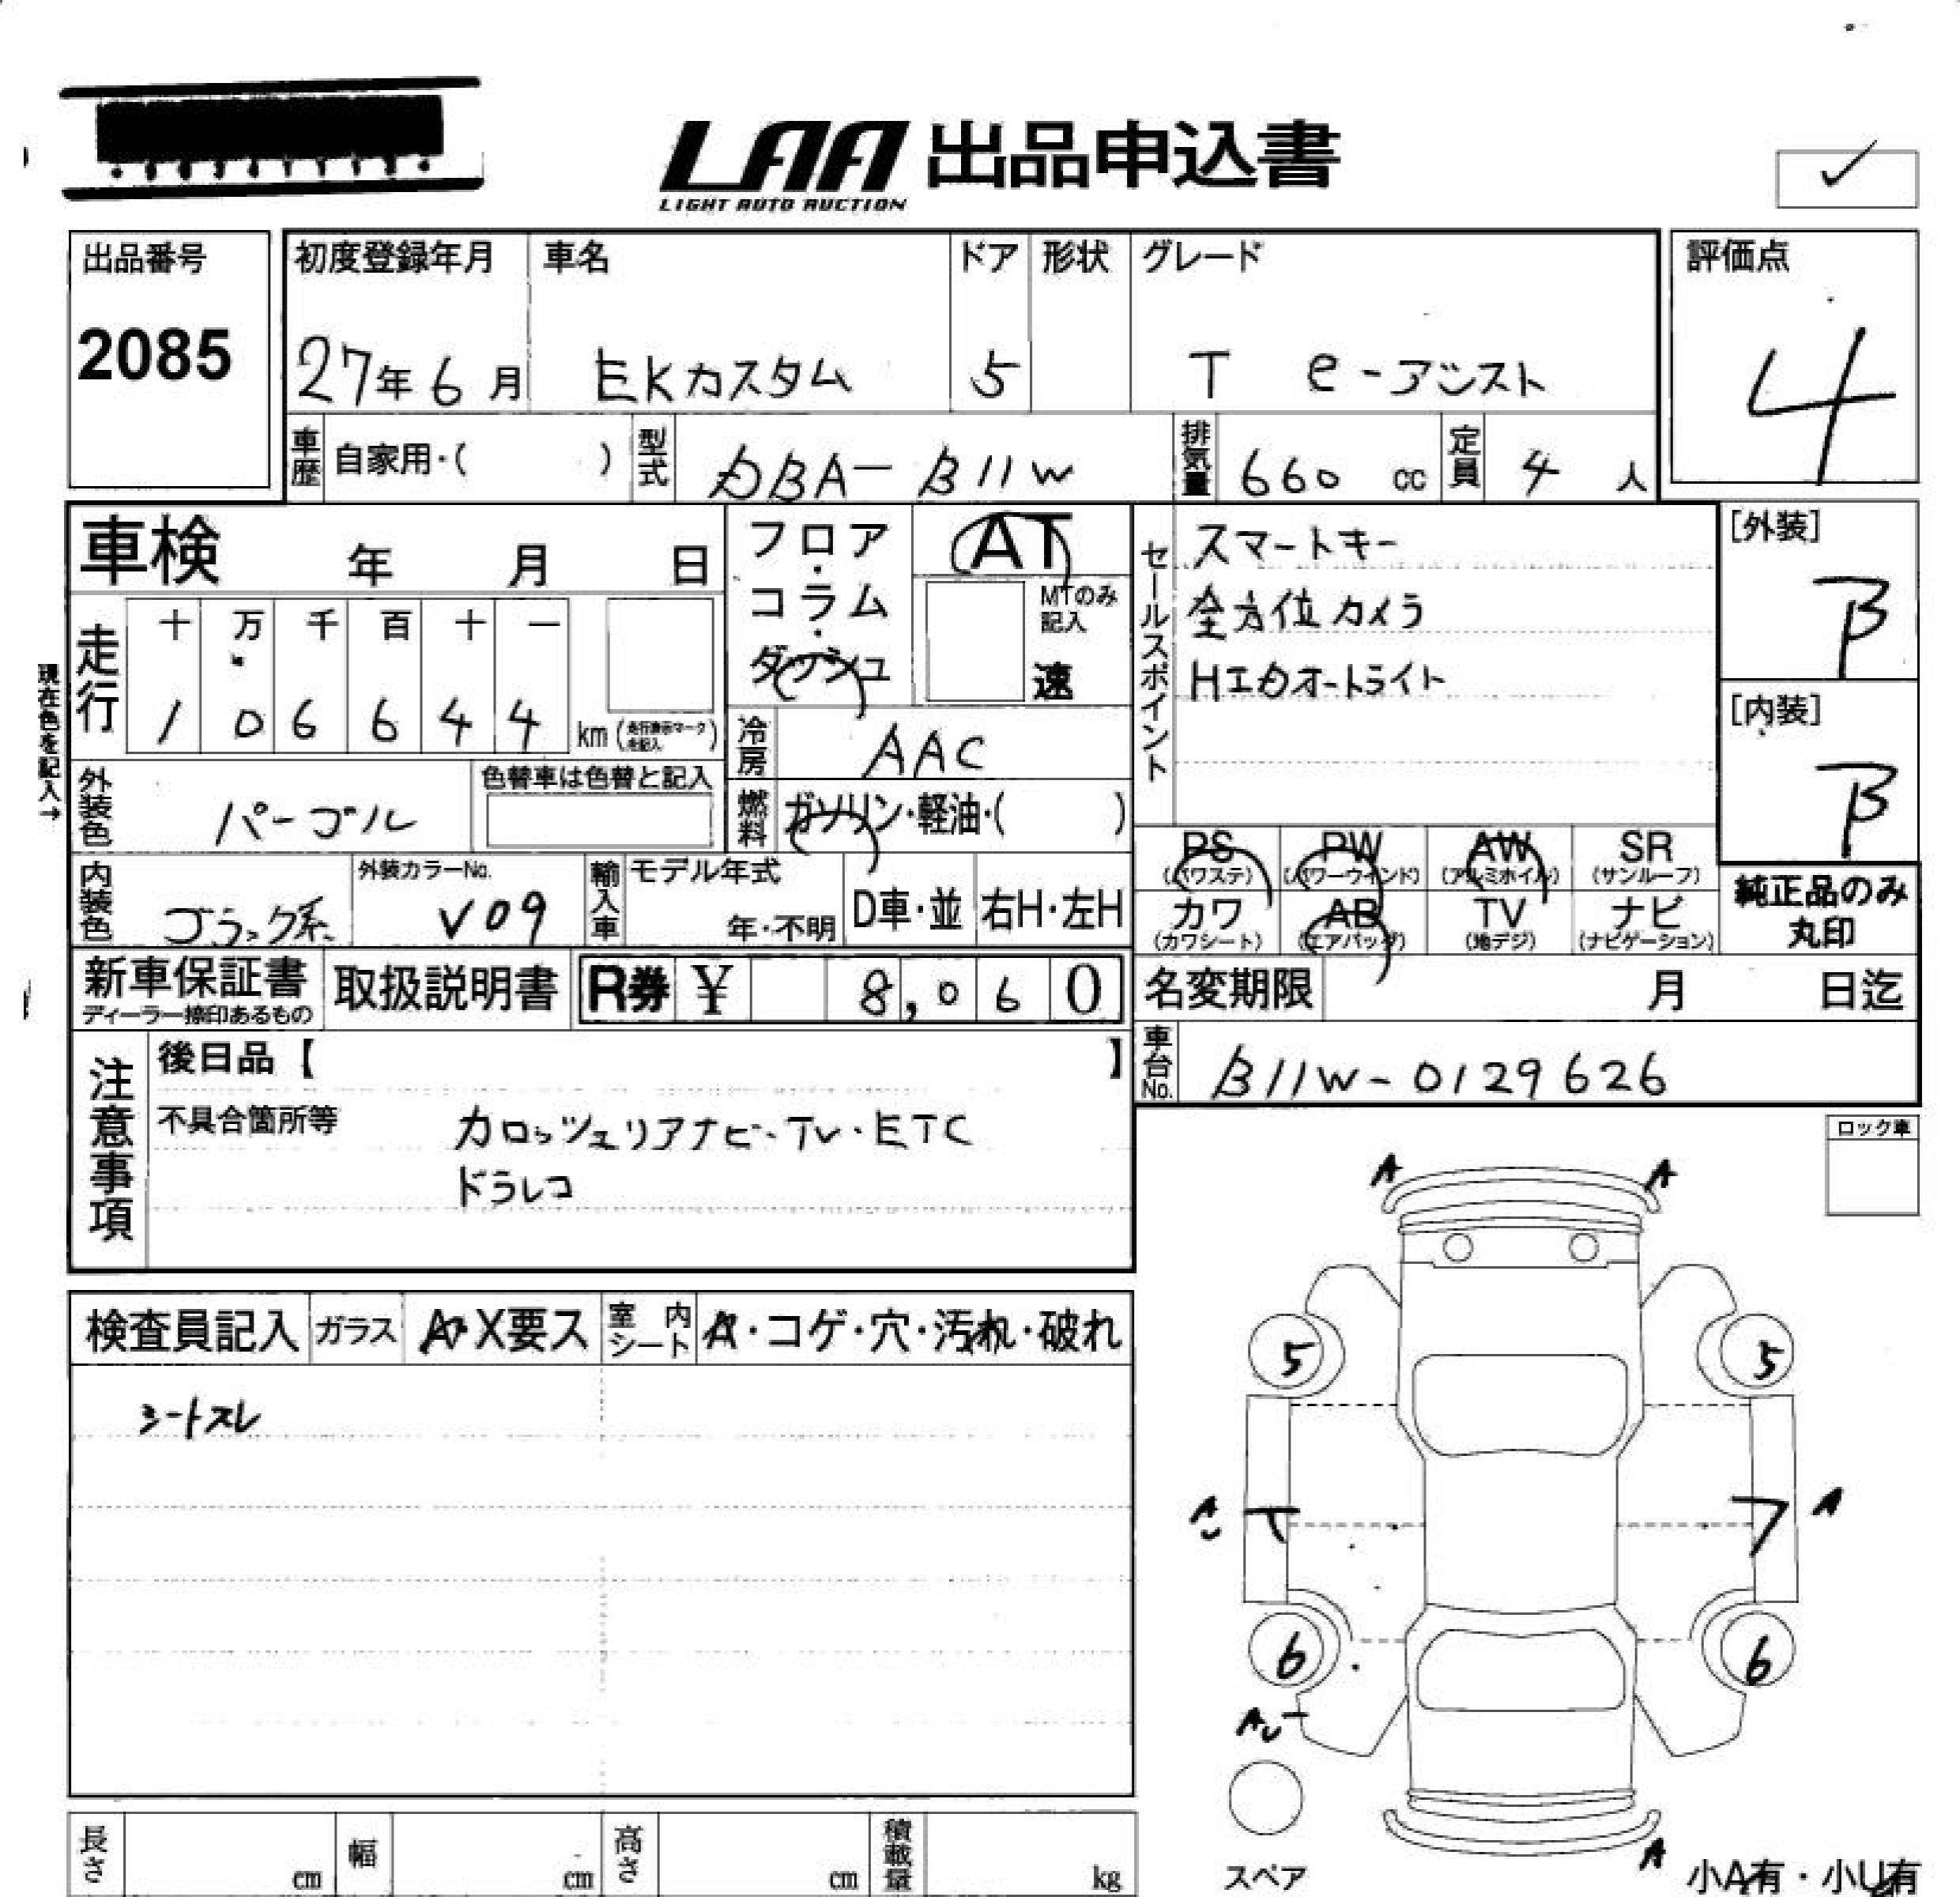 LAA 出品申込書
LIGHT AUTO AUCTION
出品番号
2085
初度登録年月 車名 ドア 形状 グレード
27年6月 EKカスタム 5 T e-アシスト
評価点
4
車歴 自家用・( ) 型式 DBA-B11W 排気量 660 cc 定員 4 人
車検 年 月 日
フロア・コラム・ダッシュ
AT
MTのみ記入
速
セールスポイント
スマートキー
全方位カメラ
HIDオートライト
[外装]
B
[内装]
B
現在色を記入→
走行 十 万 千 百 十 一
1 0 6 6 4 4 km (走行表示マークを記入)
冷房 AAC
外装色 パープル
色替車は色替と記入
燃料 ガソリン・軽油・( )
PS PW AW SR
(パワステ) (パワーウインド) (アルミホイル) (サンルーフ)
カワ AB TV ナビ
(カワシート) (エアバッグ) (地デジ) (ナビゲーション)
純正品のみ
丸印
内装色 ブラック系
外装カラーNo.
V09
輸入車 モデル年式
年・不明 D車・並 右H・左H
新車保証書 取扱説明書 R券 ¥ 8,060
ディーラー捺印あるもの
名変期限 月 日迄
車台No. B11W-0129626
注意事項
後日品【 】
不具合箇所等 カロッツェリアナビ・TV・ETC
ドラレコ
ロック車
A A
検査員記入 ガラス A・X要ス 室内シート A・コゲ・穴・汚れ・破れ
シートスレ
5 5
A
6 6
AU
スペア
A
小A有・小U有
長さ cm 幅 cm 高さ cm 積載量 kg